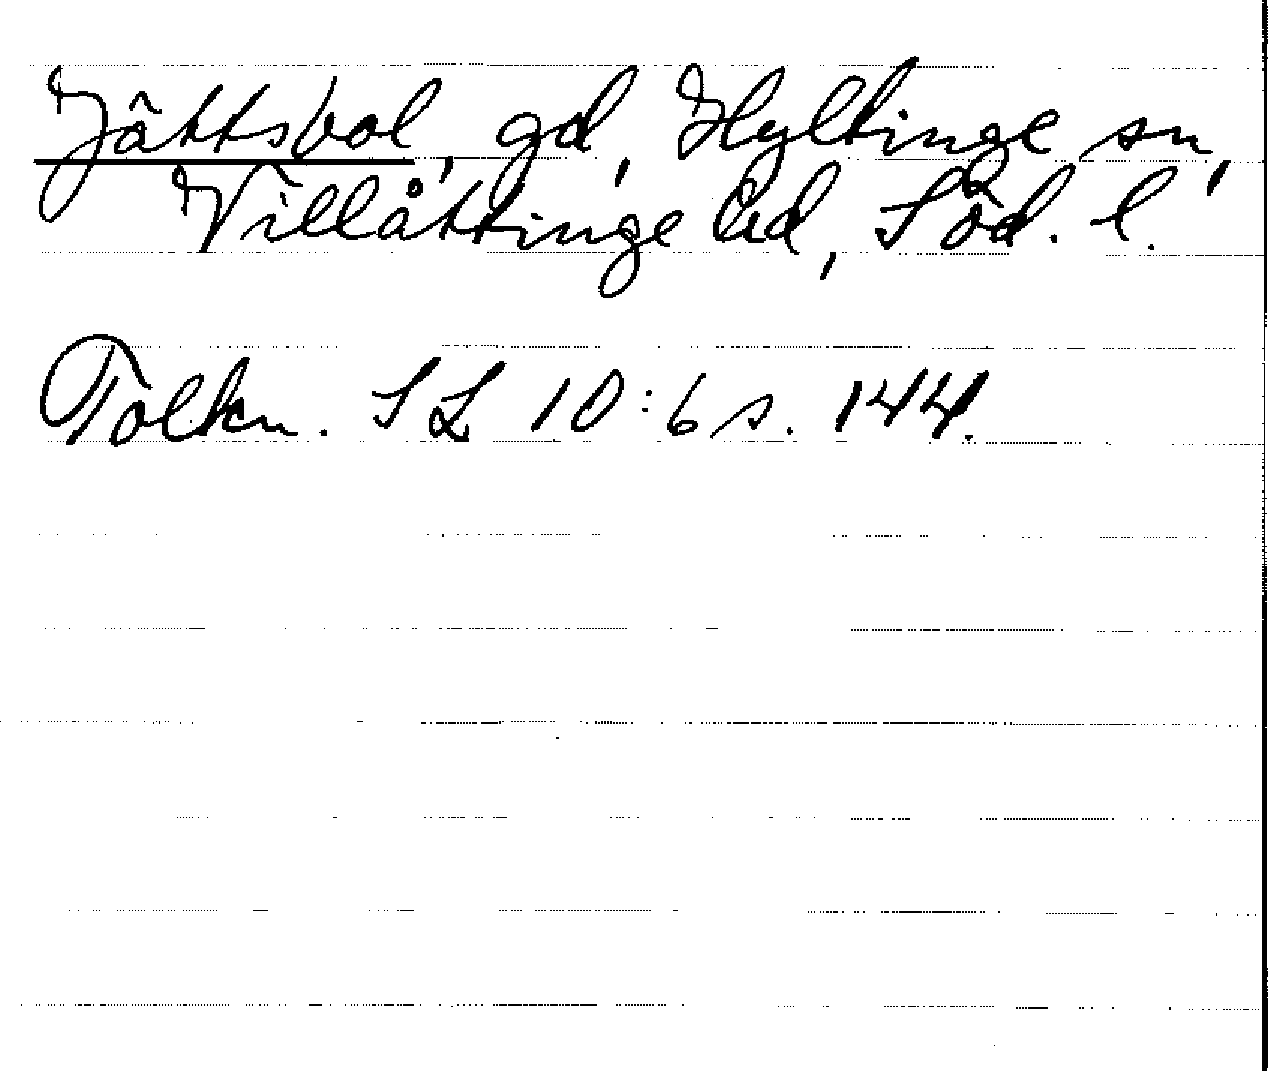 Jättsbol, gd, Hyltinge sn,
Villåttinge hd, Söd. l.
Tolkn. SL 10:6 s. 144.